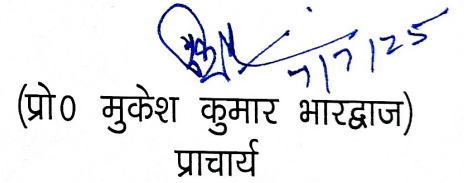 7/7/25
(प्रो0 मुकेश कुमार भारद्वाज)
प्राचार्य